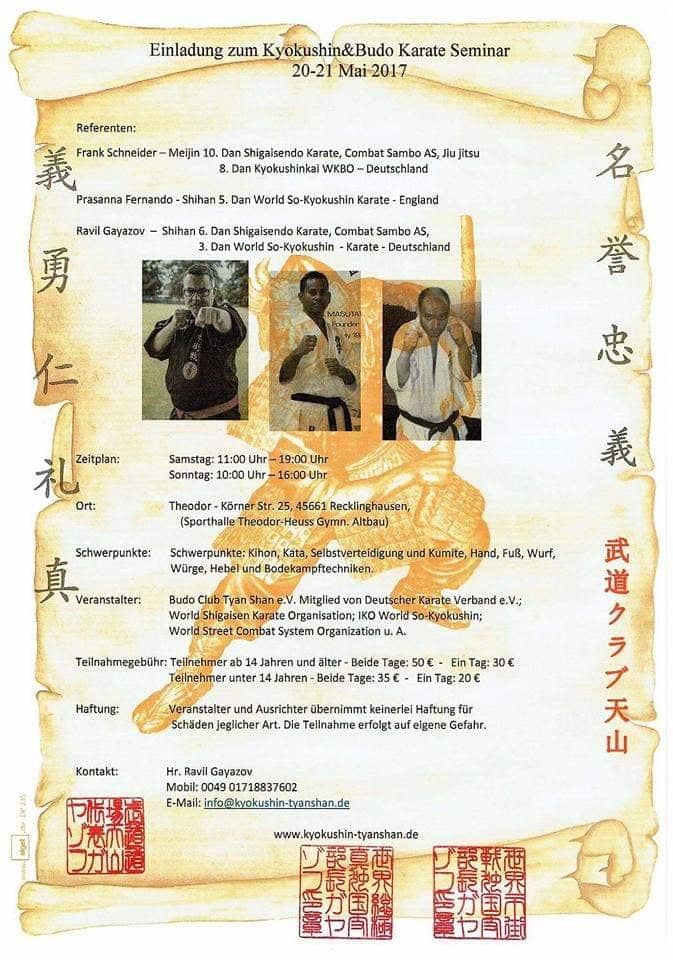 Einladung zum Kyokushin&Budo Karate Seminar
20-21 Mai 2017
Referenten:
Frank Schneider – Meijin 10. Dan Shigaisendo Karate, Combat Sambo AS, Jiu jitsu
8. Dan Kyokushinkai WKBO – Deutschland
Prasanna Fernando - Shihan 5. Dan World So-Kyokushin Karate - England
Ravil Gayazov – Shihan 6. Dan Shigaisendo Karate, Combat Sambo AS,
3. Dan World So-Kyokushin - Karate - Deutschland
義勇仁礼真
名誉忠義
MASUTA
Founder
Zeitplan: Samstag: 11:00 Uhr – 19:00 Uhr
Sonntag: 10:00 Uhr – 16:00 Uhr
Ort: Theodor - Körner Str. 25, 45661 Recklinghausen,
(Sporthalle Theodor-Heuss Gymn. Altbau)
Schwerpunkte: Schwerpunkte: Kihon, Kata, Selbstverteidigung und Kumite, Hand, Fuß, Wurf,
Würge, Hebel und Bodekampftechniken.
Veranstalter: Budo Club Tyan Shan e.V. Mitglied von Deutscher Karate Verband e.V.;
World Shigaisen Karate Organisation; IKO World So-Kyokushin;
World Street Combat System Organization u. A.
武道クラブ天山
Teilnahmegebühr: Teilnehmer ab 14 Jahren und älter - Beide Tage: 50 € - Ein Tag: 30 €
Teilnehmer unter 14 Jahren - Beide Tage: 35 € - Ein Tag: 20 €
Haftung: Veranstalter und Ausrichter übernimmt keinerlei Haftung für
Schäden jeglicher Art. Die Teilnahme erfolgt auf eigene Gefahr.
Kontakt: Hr. Ravil Gayazov
Mobil: 0049 01718837602
E-Mail: info@kyokushin-tyanshan.de
www.kyokushin-tyanshan.de